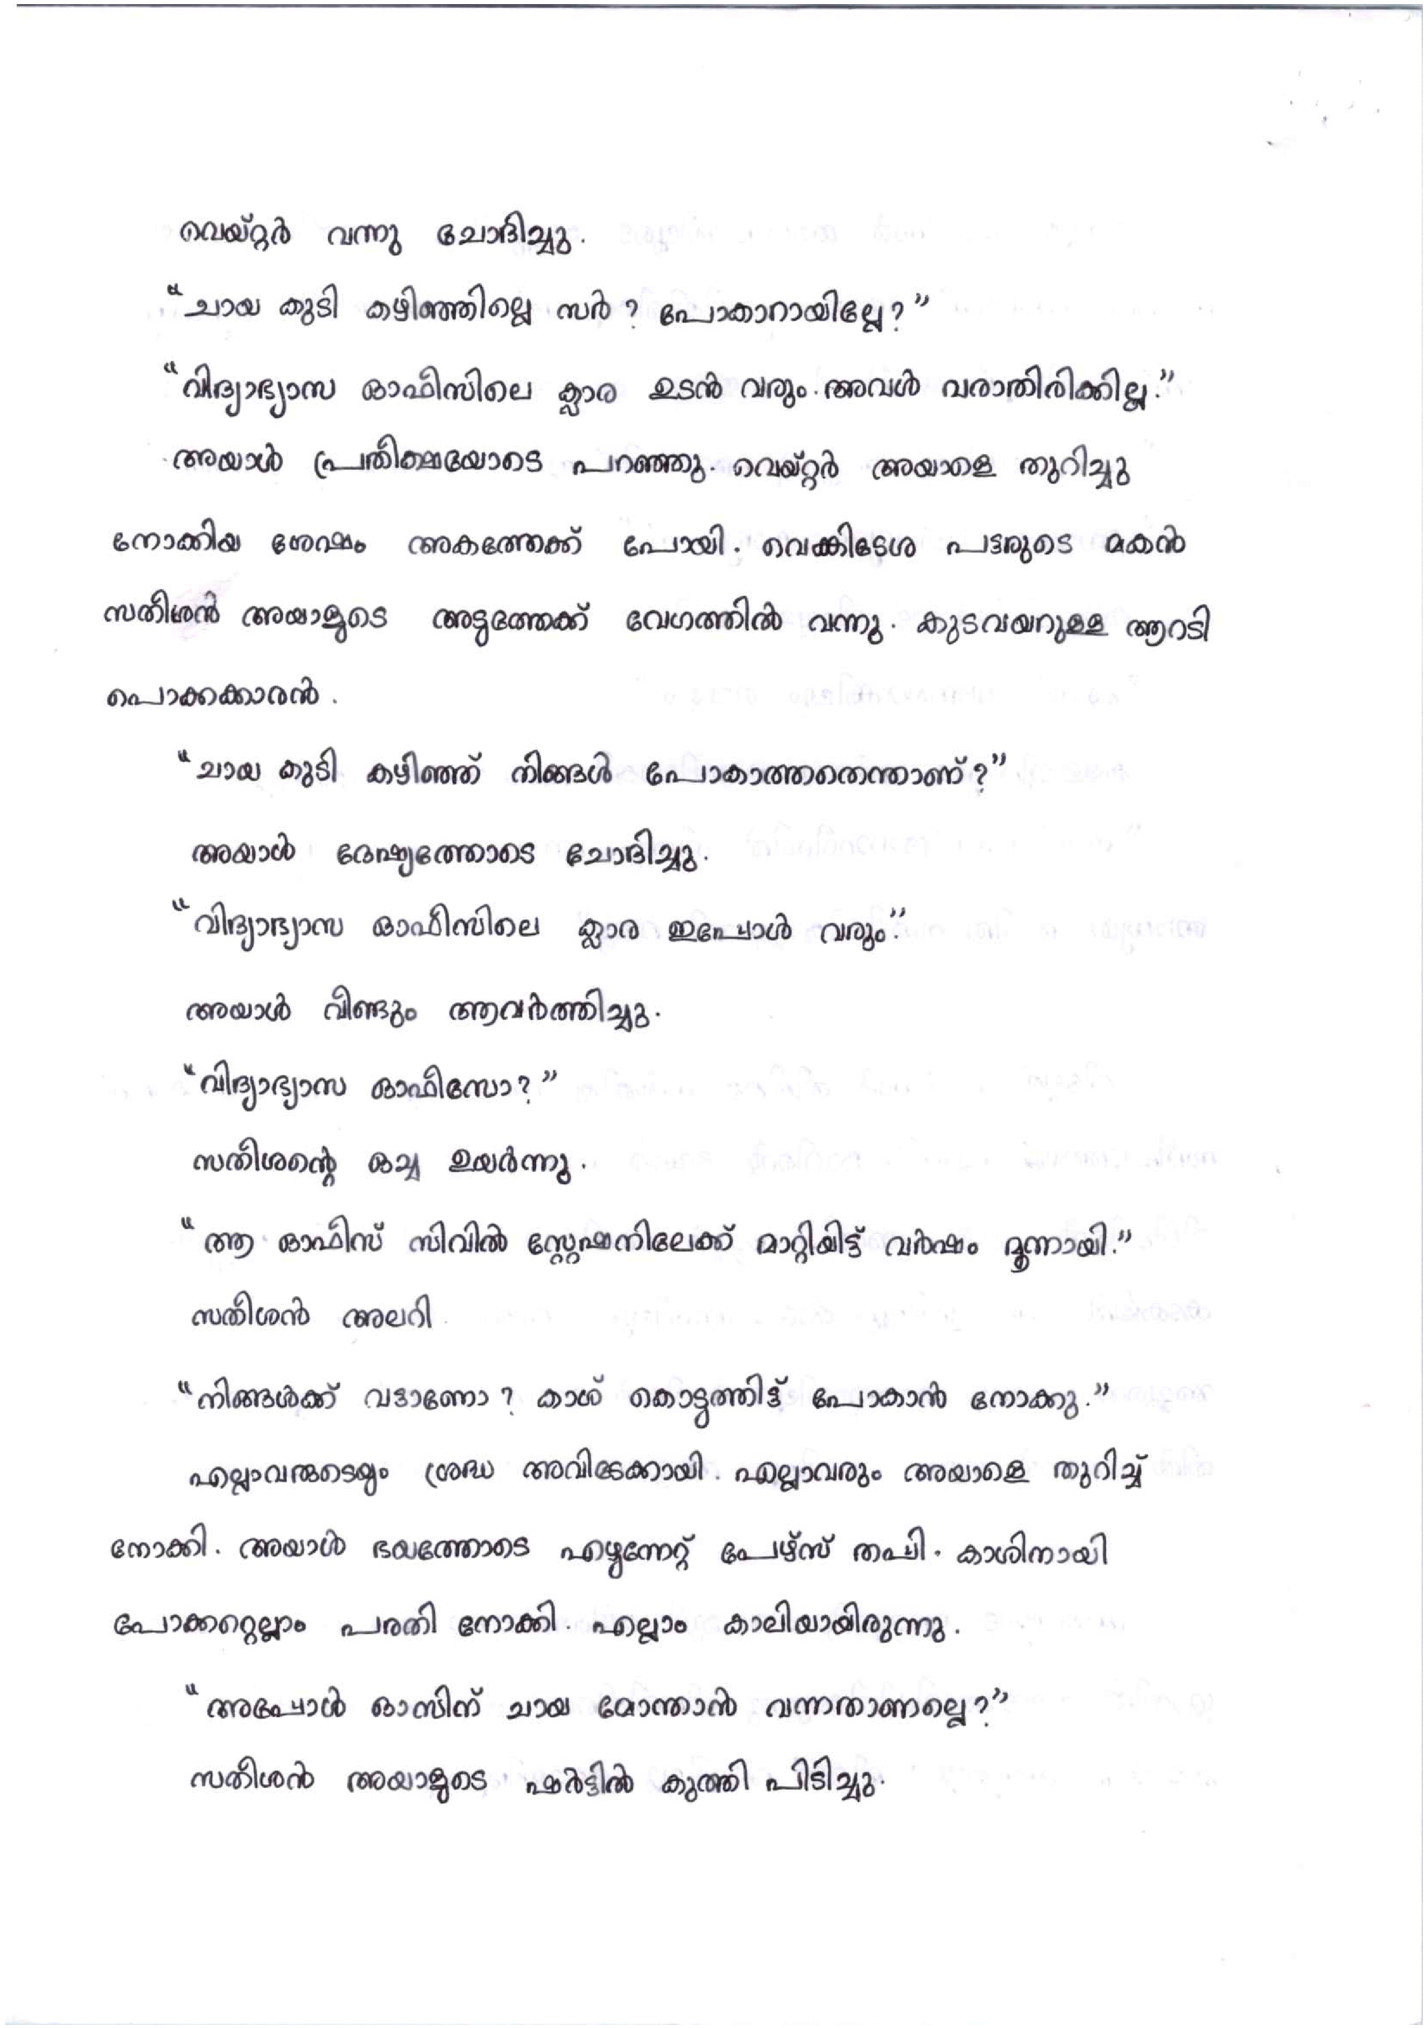 വെയ്റ്റർ വന്നു ചോദിച്ചു.
“ചായ കുടി കഴിഞ്ഞില്ലെ സർ? പോകാറായില്ലേ?”
“വിദ്യാഭ്യാസ ഓഫീസിലെ ക്ലാര ഉടൻ വരും. അവൾ വരാതിരിക്കില്ല.”
അയാൾ പ്രതീക്ഷയോടെ പറഞ്ഞു. വെയ്റ്റർ അയാളെ തുറിച്ചു
നോക്കിയ ശേഷം അകത്തേക്ക് പോയി. വെങ്കിടേശ പട്ടരുടെ മകൻ
സതീശൻ അയാളുടെ അടുത്തേക്ക് വേഗത്തിൽ വന്നു. കുടവയറുള്ള ആറടി
പൊക്കക്കാരൻ.
“ചായ കുടി കഴിഞ്ഞ് നിങ്ങൾ പോകാത്തതെന്താണ്?”
അയാൾ ദേഷ്യത്തോടെ ചോദിച്ചു.
“വിദ്യാഭ്യാസ ഓഫീസിലെ ക്ലാര ഇപ്പോൾ വരും.”
അയാൾ വീണ്ടും ആവർത്തിച്ചു.
“വിദ്യാഭ്യാസ ഓഫീസോ?”
സതീശന്റെ ഒച്ച ഉയർന്നു.
“ആ ഓഫീസ് സിവിൽ സ്റ്റേഷനിലേക്ക് മാറ്റിയിട്ട് വർഷം മൂന്നായി.”
സതീശൻ അലറി
“നിങ്ങൾക്ക് വട്ടാണോ? കാശ് കൊടുത്തിട്ട് പോകാൻ നോക്കു.”
എല്ലാവരുടെയും ശ്രദ്ധ അവിടേക്കായി. എല്ലാവരും അയാളെ തുറിച്ച്
നോക്കി. അയാൾ ഭയത്തോടെ എഴുന്നേറ്റ് പേഴ്സ് തപ്പി. കാശിനായി
പോക്കറ്റെല്ലാം പരതി നോക്കി. എല്ലാം കാലിയായിരുന്നു.
“അപ്പോൾ ഓസിന് ചായ മോന്താൻ വന്നതാണല്ലെ?”
സതീശൻ അയാളുടെ ഷർട്ടിൽ കുത്തി പിടിച്ചു.